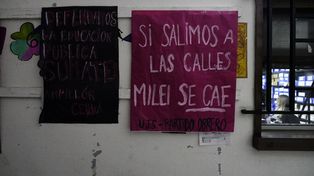 DEFENDAMOS
LA EDUCACIÓN
PÚBLICA
SUMATE
SI SALIMOS A
LAS CALLES
MILEI SE CAE
UJS - PARTIDO OBRERO